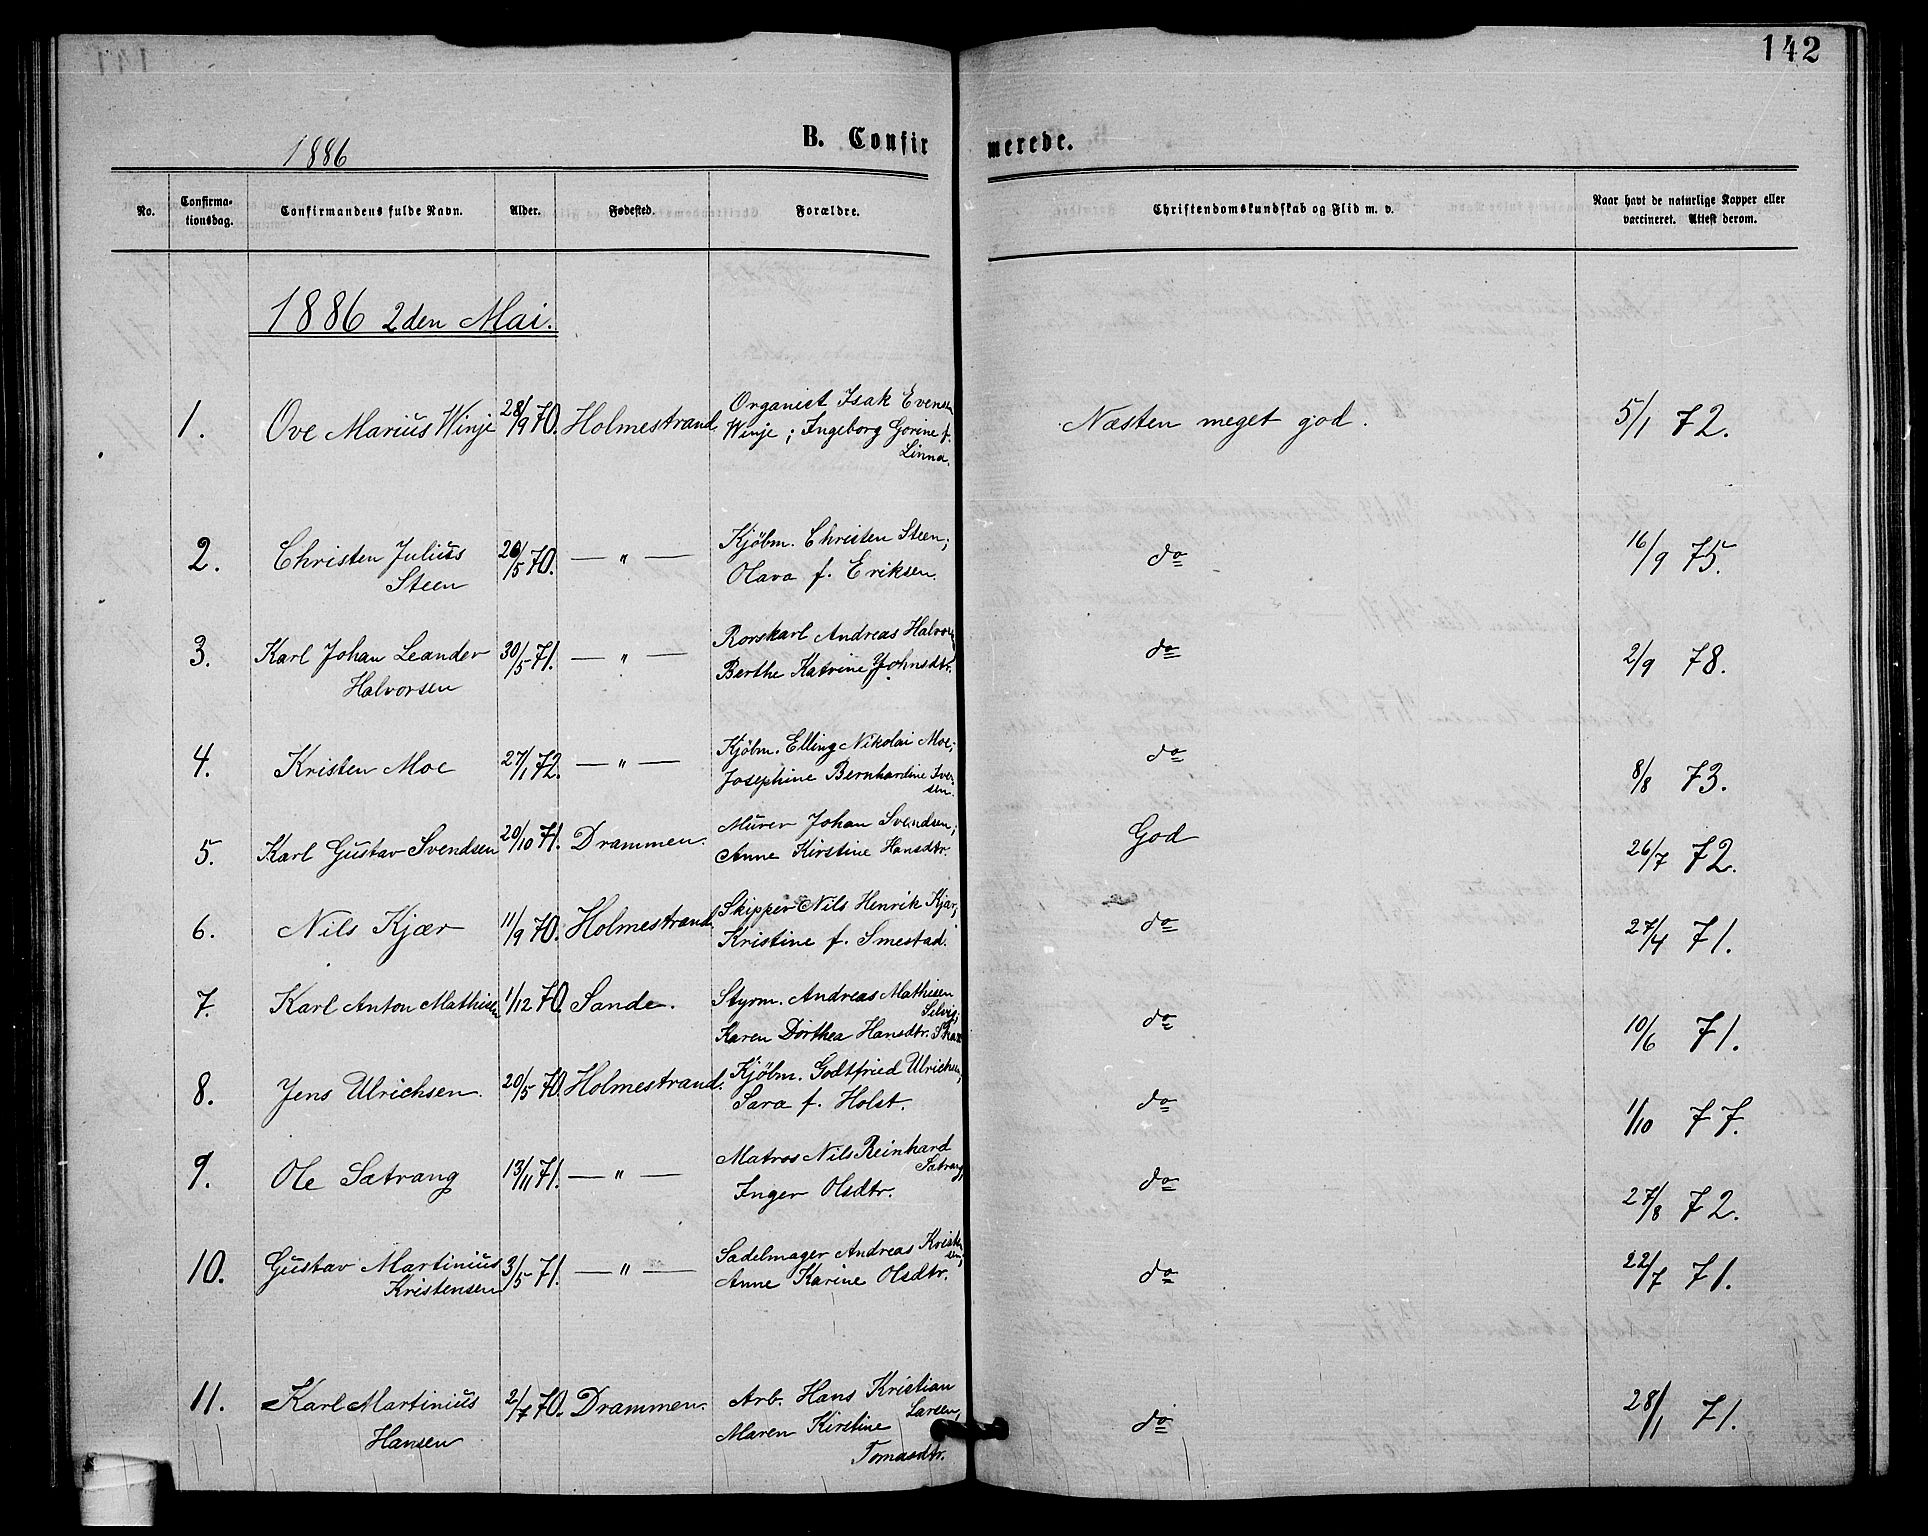 142
1886
B. Confirmerede.
No.
Confirma-
tionsdag.
Confirmandens fulde Navn.
Alder.
Fødested.
Forældre.
Christendomskundskab og Flid m. v.
Naar havt de naturlige Kopper eller
vaccineret. Attest derom.
1886 2den Mai.
1. Ove Marius Winje 28/9 70. Holmestrand Organist Isak Evensen Næsten meget god. 5/1 72.
Winje; Ingeborg Gorine f.
Linna.
2. Christen Julius 20/5 70. — " — Kjöbm. Christen Steen; do 16/9 75.
Steen Olava f. Eriksen.
3. Karl Johan Leander 30/5 71. — " — Rorskarl Andreas Halvorsen do 2/9 78.
Halvorsen Berthe Katrine Johnsdtr.
4. Kristen Moe 27/1 72. — " — Kjöbm. Elling Nikolai Moe; do 8/8 73.
Josephine Bernhardine Iver-
sen.
5. Karl Gustav Svendsen 20/10 71. Drammen. Murer Johan Svendsen; God 26/7 72.
Anne Kirstine Hansdtr.
6. Nils Kjær 11/9 70. Holmestrand. Skipper Nils Henrik Kjær; do 27/4 71.
Kristine f. Smestad.
7. Karl Anton Mathisen 1/12 70. Sande. Styrm. Andreas Mathisen do 10/6 71.
Selvig;
Karen Dorthea Hansdtr.
8. Jens Ulrichsen. 20/5 70. Holmestrand. Kjöbm. Godtfried Ulrichsen; do 1/10 77.
Sara f. Holst.
9. Ole Sætrang 13/11 71. — " — Matros Nils Reinhard do 27/8 72.
Sætrang,
Inger Olsdtr.
10. Gustav Martinius 3/5 71. — " — Sadelmager Andreas Kristen- do 22/7 71.
sen;
Kristensen Anne Karine Olsdtr.
11. Karl Martinius 2/7 70. Drammen. Arb. Hans Kristian do 28/1 71.
Larsen,
Hansen Maren Kirstine
Tomasdtr.